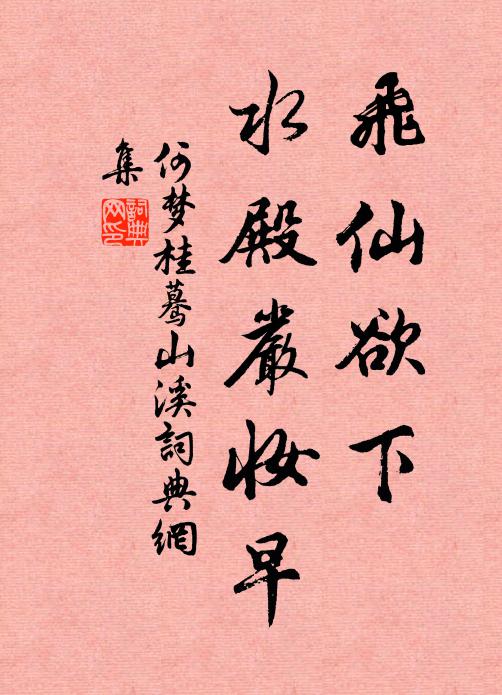 飛仙欲下
水殿嚴妝早
何梦桂驀山溪詞典網
集
詞典
网印